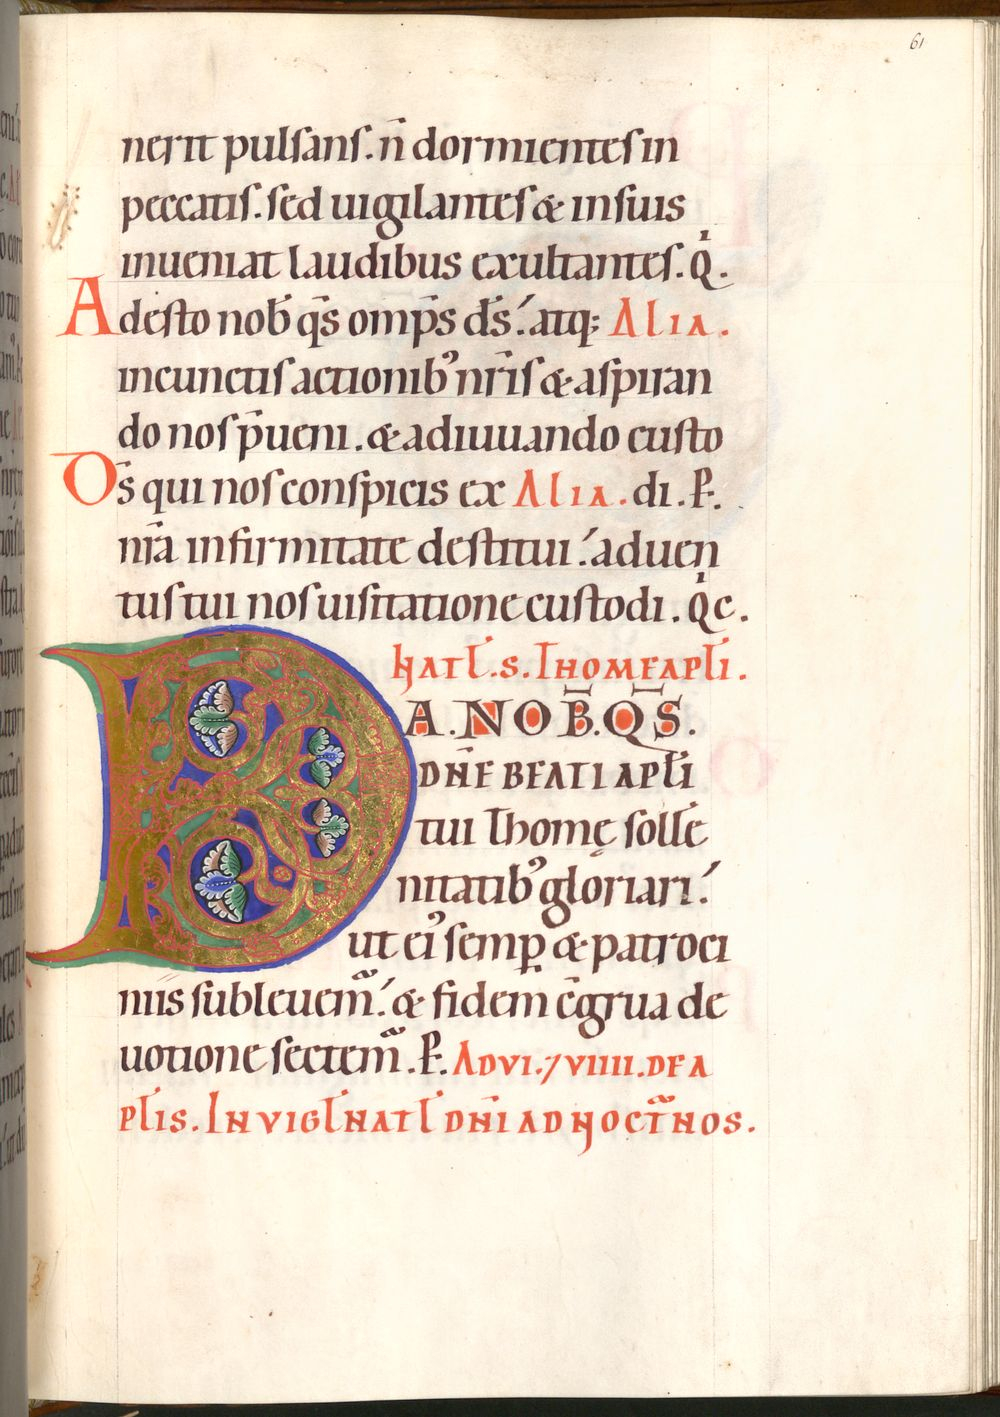 61
nerit pulsans. n̄ dormientes in
peccatis. sed uigilantes & in suis
inueniat laudibus exultantes. Q̇.
Adesto nob̄ q̄s omp̄s d̄s. atq; Alia.
in cunctis actionib' nr̄is & aspiran
do nos p̄ueni. & adiuuando custo
D̄s qui nos conspicis ex Alia. di. P̄.
nr̄a infirmitate destitui. aduen
tus tui nos uisitatione custodi. Q̇ c.
NATL̄. S. THOME APL̄I.
DA. NOB̄. Q̄S.
DN̄E BEATI APL̄I
tui Thomę solle
nitatib' gloriari.
ut ei' semp̱ & patroci
niis subleuem̄. & fidem c̄grua de
uotione sectem̄. P̄. AD VI. 7 VIIII. DE A
PL̄IS. IN VIGL̄ NATL̄ DN̄I AD NOCT̄NOS.